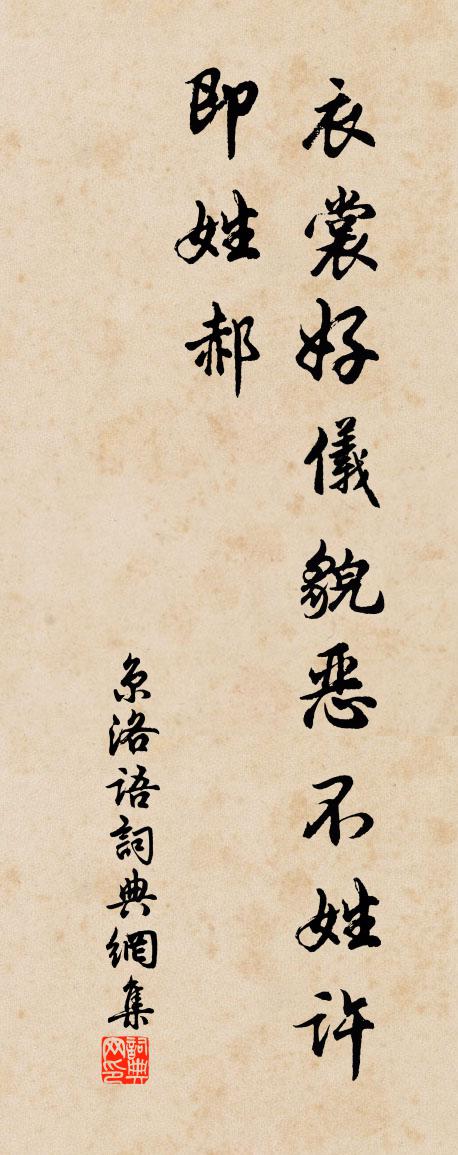 衣裳好儀貌惡不姓許
即姓郝
京洛語詞典網集
詞典网印